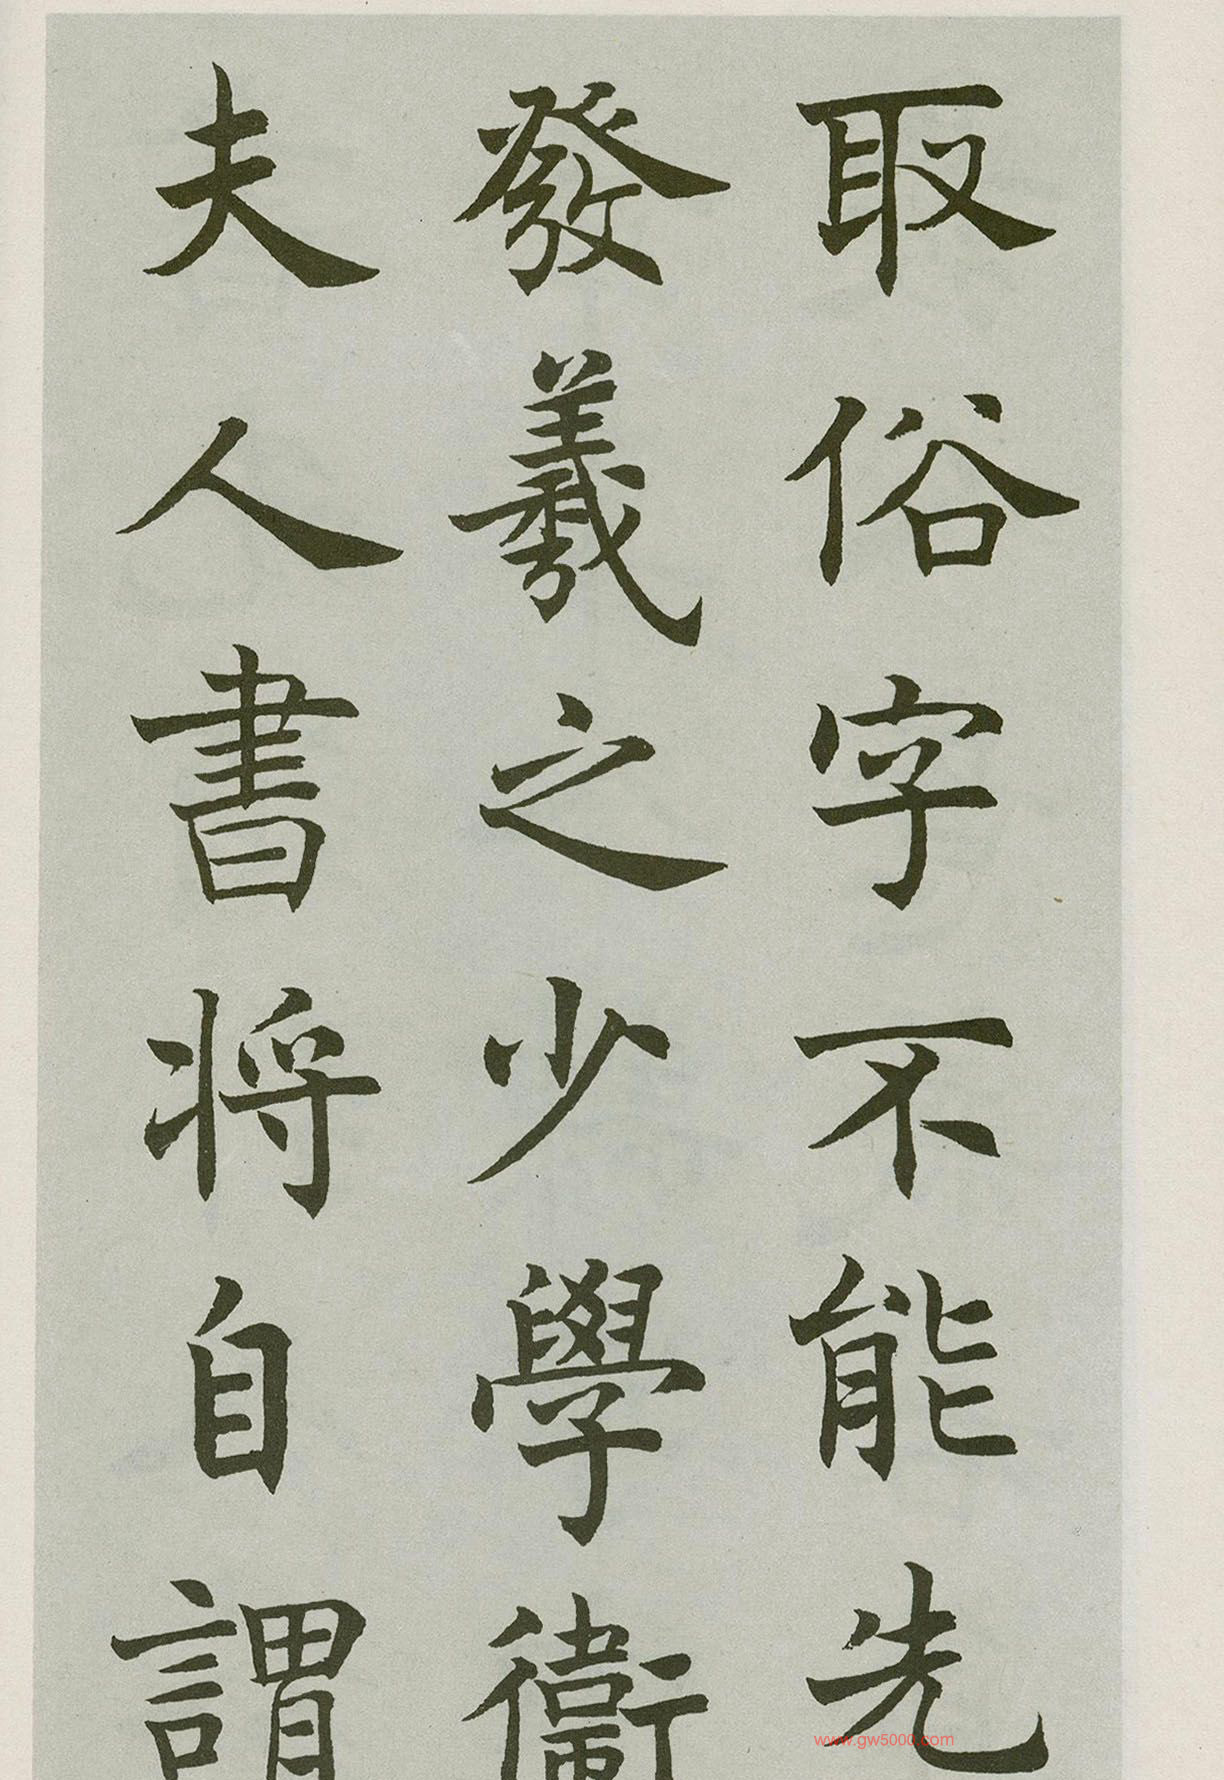 取俗字不能先
發羲之少學衞
夫人書将自謂
www.gw5000.com